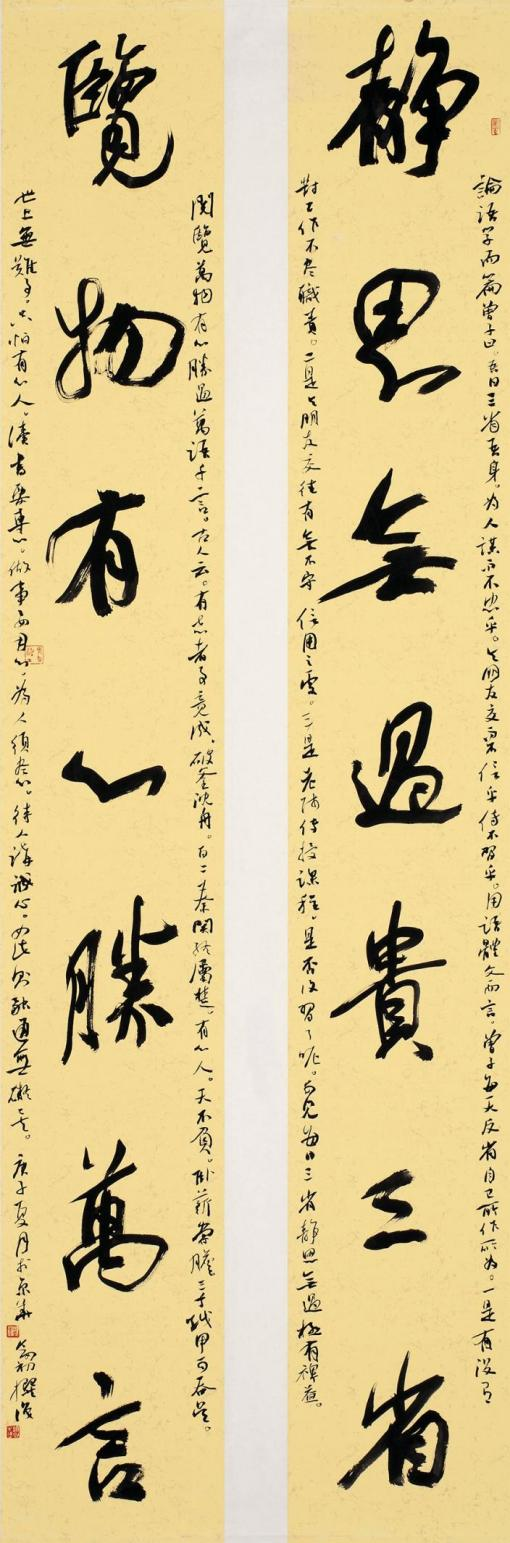 靜思無過貴三省
論語学而篇曾子曰。吾日三省吾身。为人謀而不忠乎。与朋友交而不信乎。传不習乎。用語體文而言。曾子每天反省自己所作所为。一是有没有
對工作不尽職責。二是与朋友交往有無不守信用之處。三是老師传授課程，是否復習了呢。可見每日三省静思無過極有裨益。
覽物有心勝萬言
閱覽萬物有心勝過萬語千言。古人云。有志者事竟成，破釜沈舟。百二秦関終屬楚。有心人。天不負。卧薪嘗膽三千越甲可吞吴。
世上無難事只怕有心人。讀書要專心。做事要用心，為人須尽心。待人講誠心。如此则融通無礙矣。庚子夏月於京華